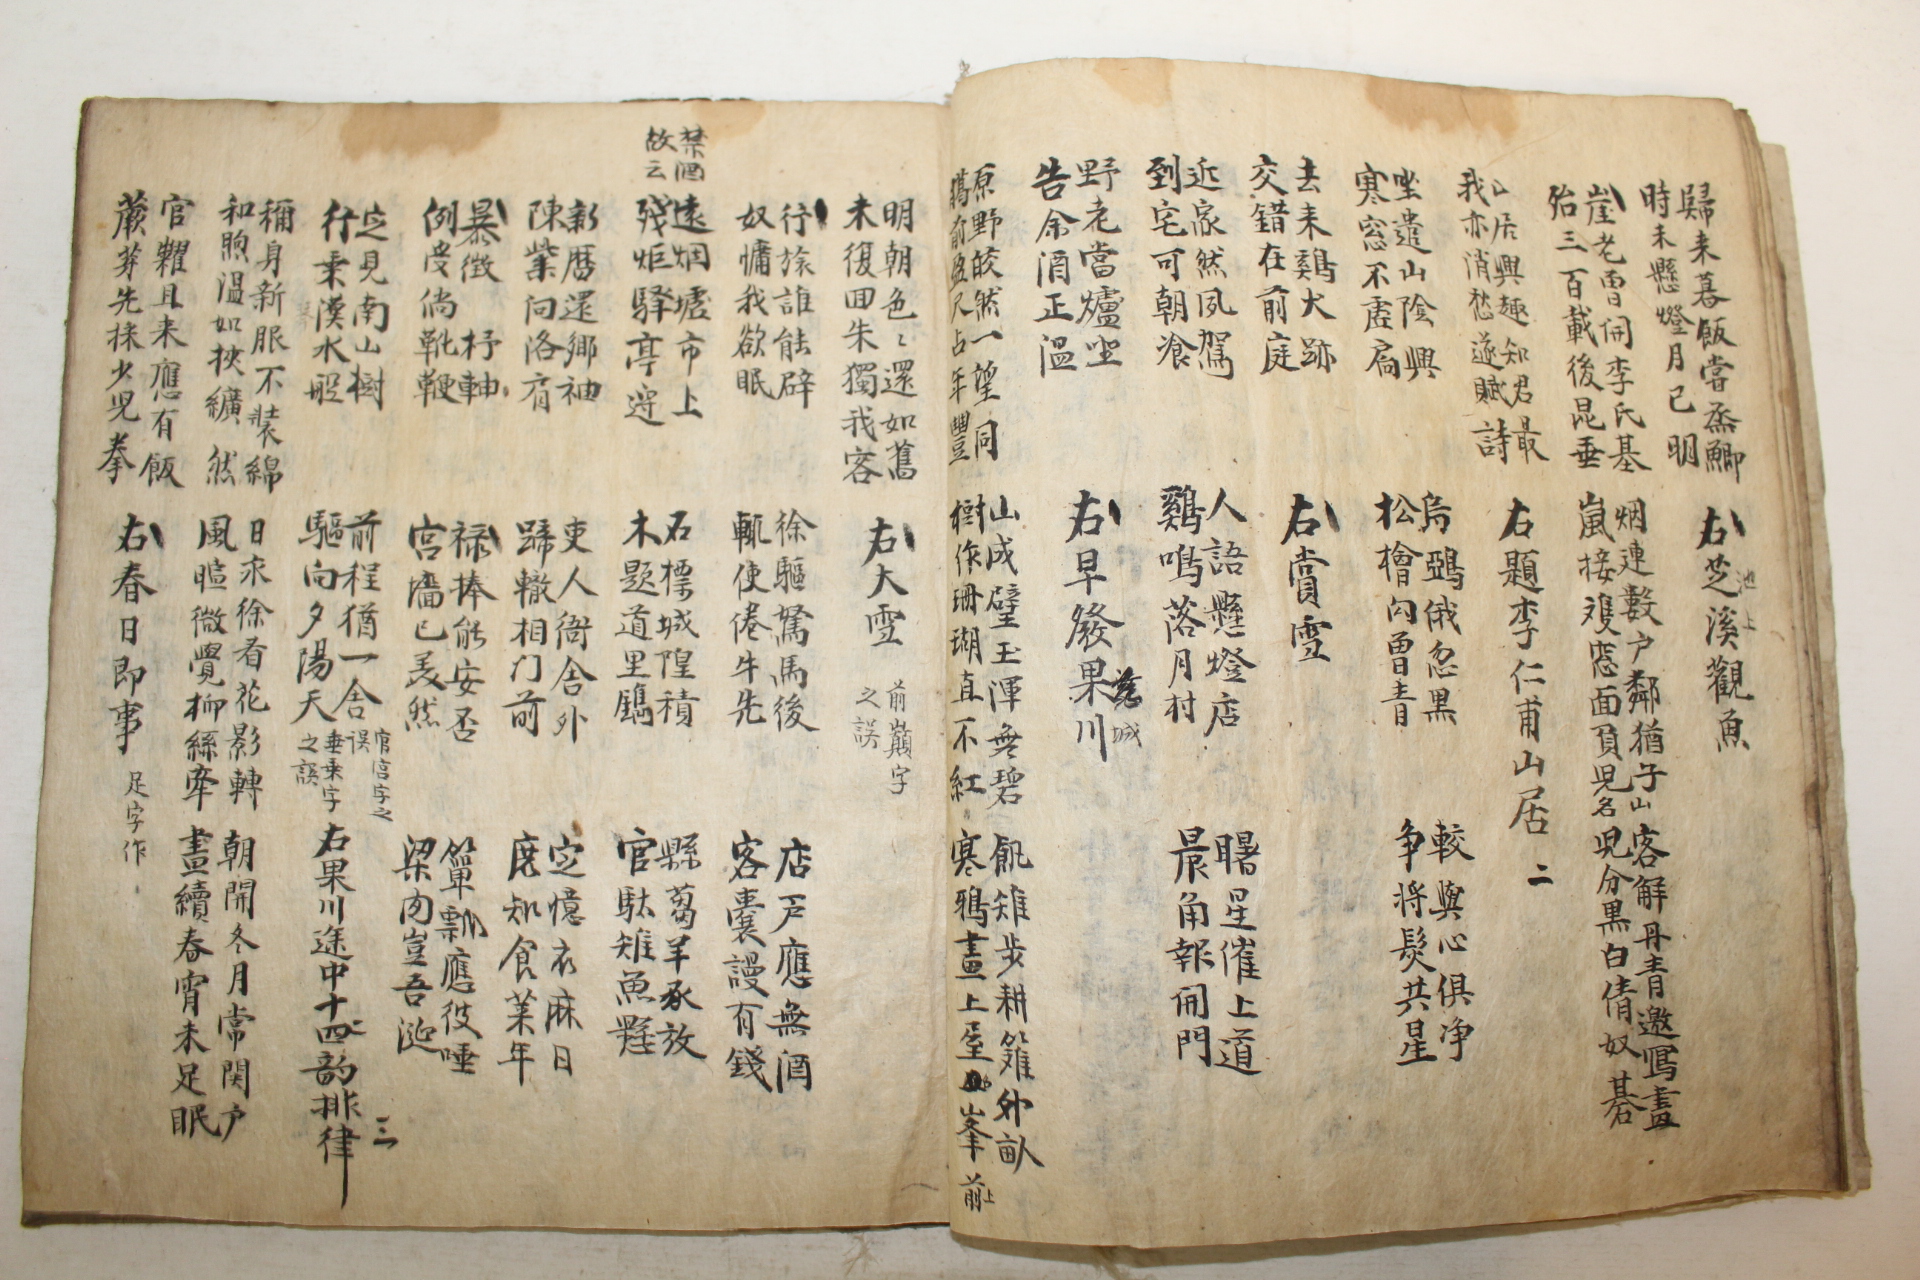 歸来暮飯嘗烝鯽
時未懸燈月已明
右芝溪觀魚
池上
崖老曾開李氏基
殆三百載後昆垂
烟連數户鄰猶子
嵐接雙窓面頂児名
山客解丹青邀寫畫
児分黑白倩奴碁
山居興趣知君最
我亦消愁遂賦詩
右題李仁甫山居 二
坐遣山陰興
寒窓不處扃
烏鵶俄忽黑
松檜曾青
較與心俱净
争将髮共星
去来鷄犬跡
交錯在前庭
右賞雪
近家然夙駕
到宅可朝飡
人語懸燈店
鷄鳴落月村
曙星催上道
晨角報開門
野老當爐坐
告余酒正温
右早發果川
城
原野皎然一望同
臈前盈尺占年豐
山成璧玉渾無碧
樹作珊瑚直不紅
飢雉步耕籬外畝
寒鴉畫上屋峯
前上
明朝色〻還如舊
未復回朱獨我容
右大雪
前巔字
之誤
行旅誰能辟
奴慵我欲眠
徐驅駑馬後
輒使倦牛先
店戸應無酒
客囊謾有錢
禁酒
故云
遠烟墟市上
殘炬驛亭邊
石標城隍積
木題道里鐫
縣蒭羊豕放
官馱雉魚懸
新曆還鄉袖
陳柴向洛肩
吏人衙舍外
蹄轍相門前
定憶衣麻日
庶知食菜年
暴徵杼軸
例受倘靴鞭
禄捧能安否
宮墻已羨然
簞瓢應彼唾
粱肉豈吾涎
定見南山樹
行乗漢水船
前程猶一舍
驅向夕陽天
官宮字之
誤
垂乗字
之誤
右果川途中十四韵排律
三
稱身新服不裝綿
和煦温如挾纊然
日永徐看花影轉
風暄微覺柳絲牽
朝開冬月常関户
晝續春宵未足眠
官糶且来應有飯
蕨芽先採少児拳
右春日即事
足字作